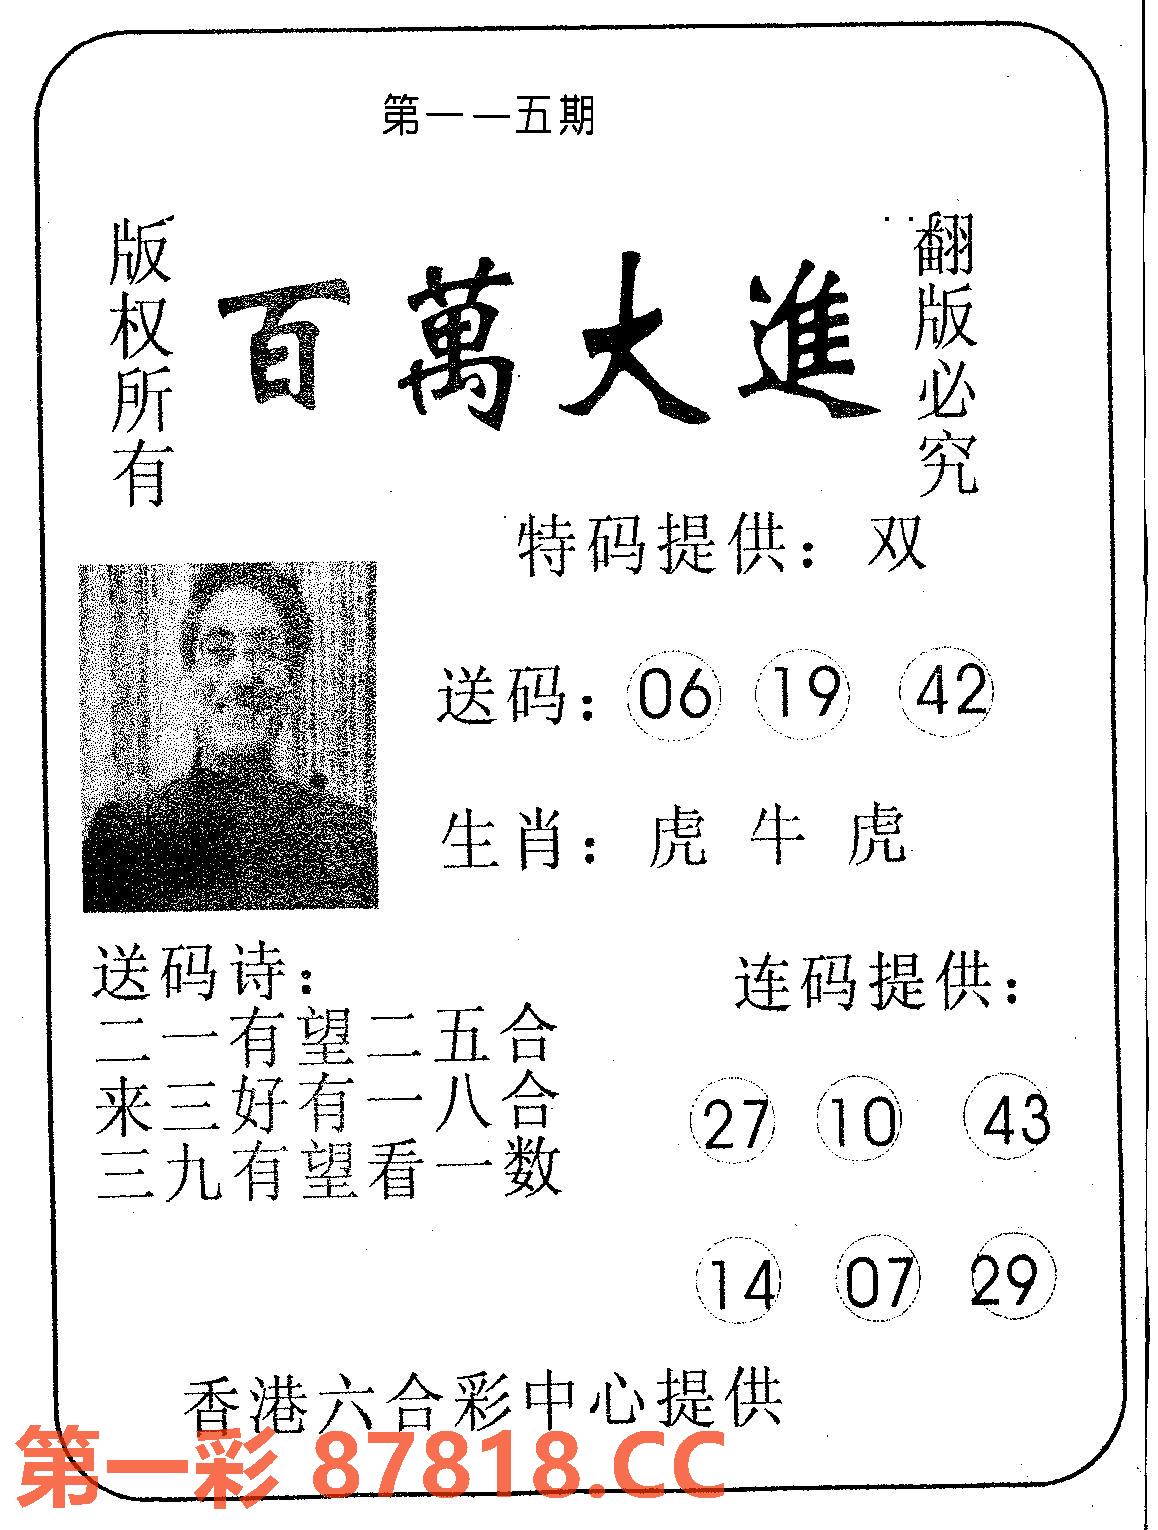 第一一五期
版权所有
百萬大進
翻版必究
特码提供：双
送码：06 19 42
生肖：虎 牛 虎
送码诗：
二一有望二五合
来三好有一八合
三九有望看一数
连码提供：
27 10 43
14 07 29
香港六合彩中心提供
第一彩 87818.CC